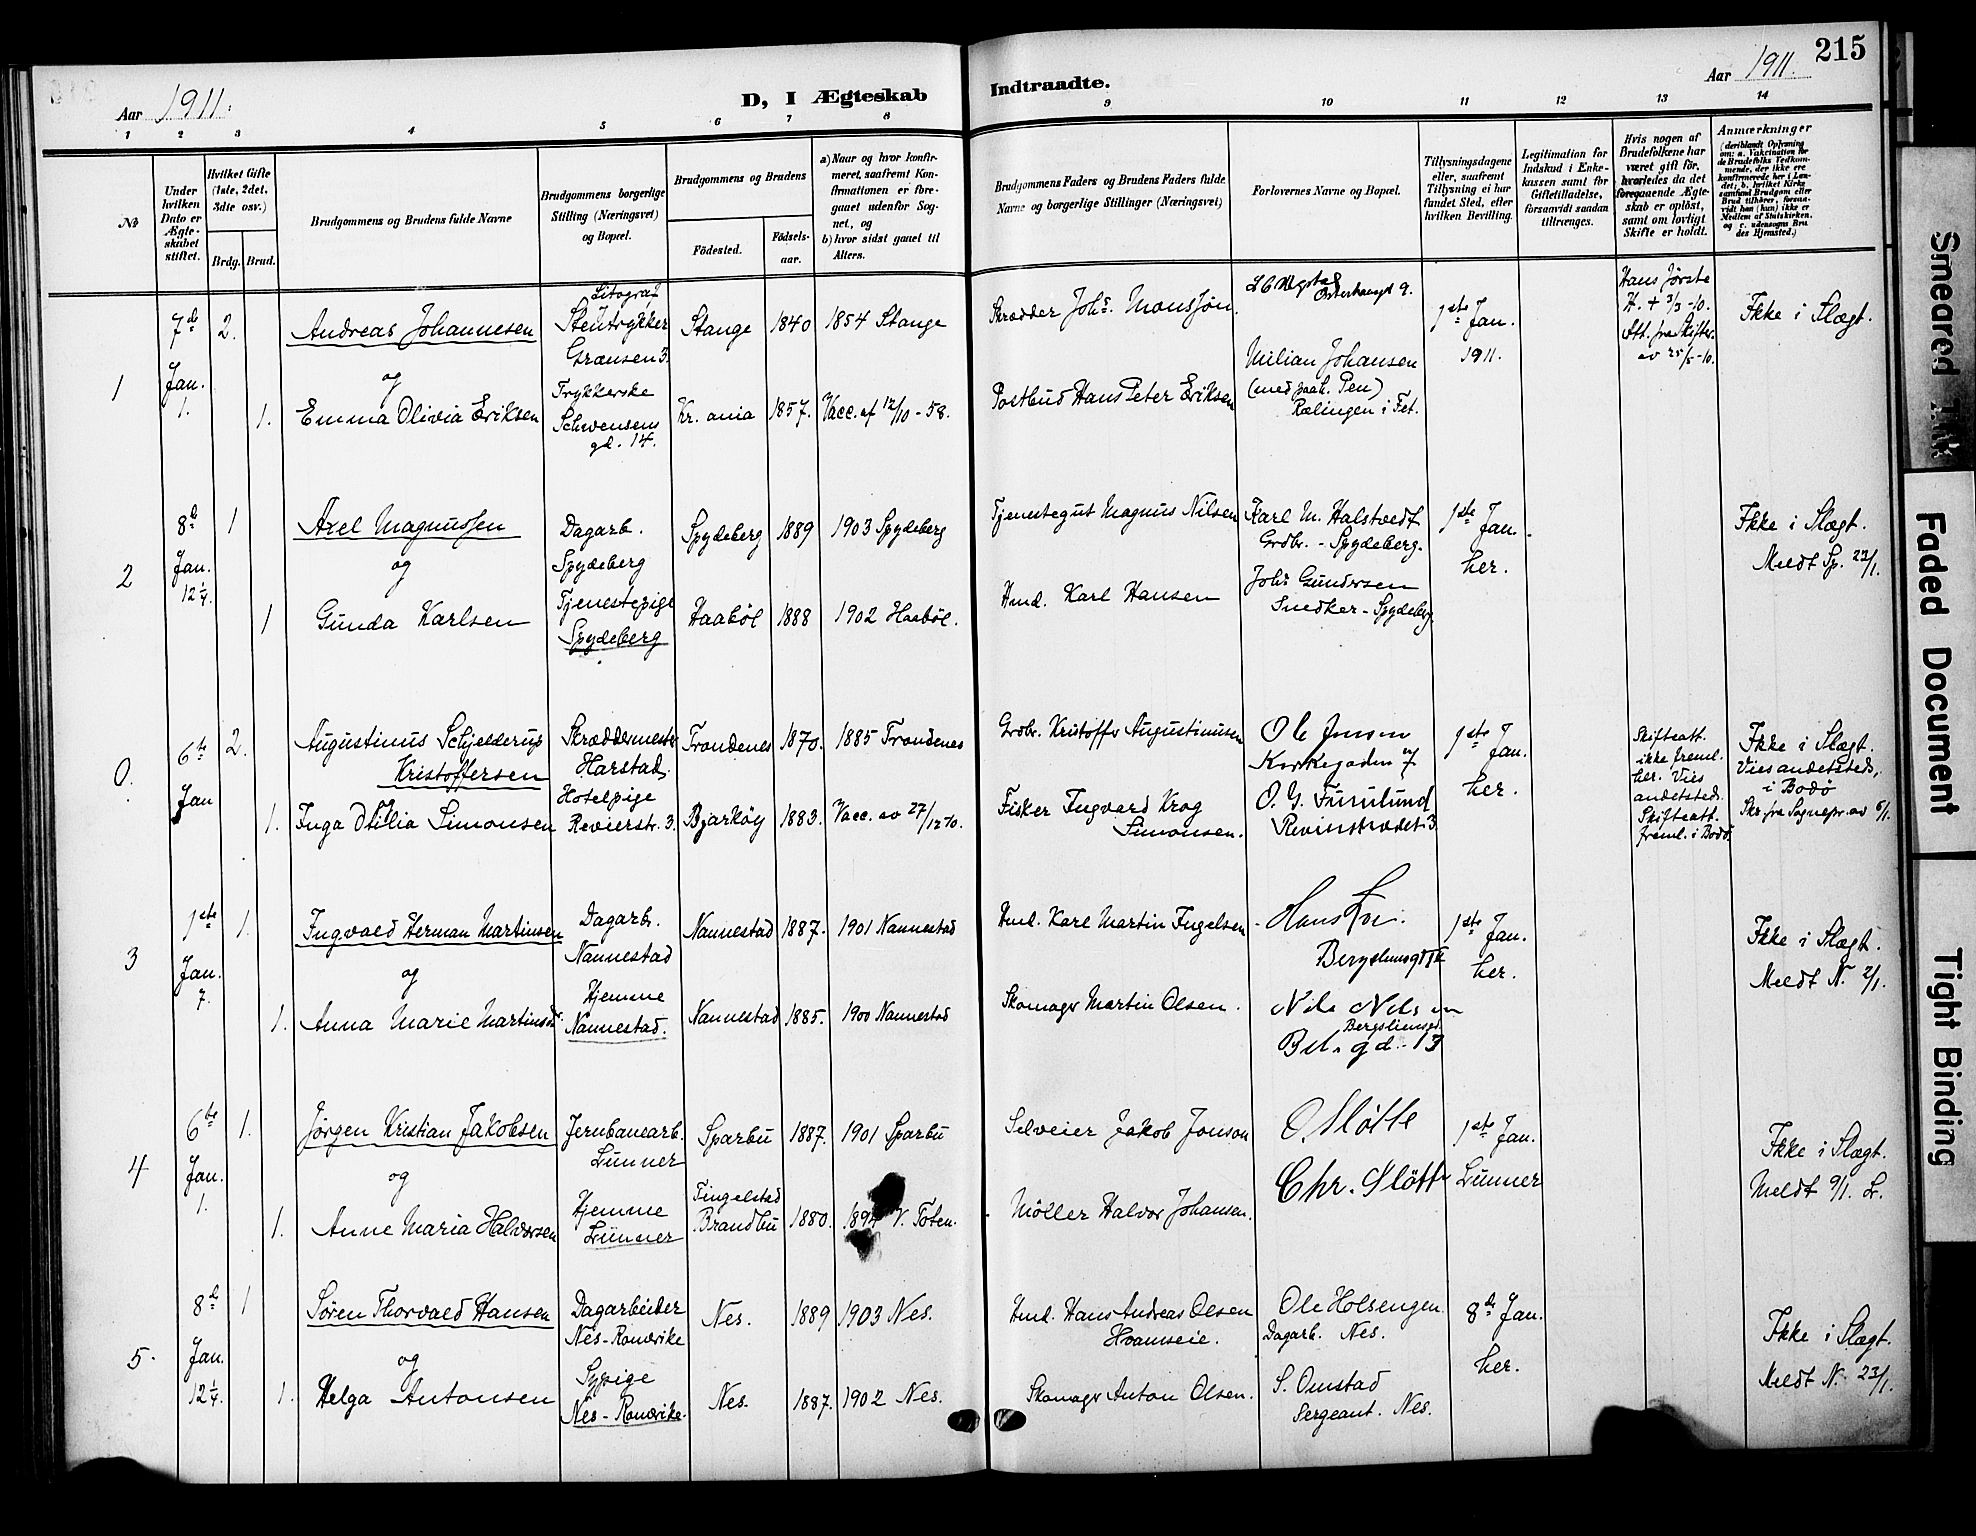 Aar 1911.
D, I Ægteskab
Indtraadte.
Aar 1911.
215
1 2 3 4 5 6 7 8
9 10 11 12 13 14
No
Under hvilken Dato er Ægteskabet stiftet.
Hvilket Gifte (1ste, 2det, 3die osv.)
Brdg. Brud.
Brudgommens og Brudens fulde Navne
Brudgommens borgerlige Stilling (Næringsvei) og Bopæl.
Brudgommens og Brudens
Födested.
Födselsaar.
a) Naar og hvor konfirmeret, saafremt Konfirmationen er foregaaet udenfor Sognet, og
b) hvor sidst gaaet til Alters.
Brudgommens Faders og Brudens Faders fulde Navne og borgerlige Stillinger (Næringsvei)
Forlovernes Navne og Bopæl.
Tillysningsdagene eller, saafremt Tillysning ei har fundet Sted, efter hvilken Bevilling.
Legitimation for Indskud i Enkekassen samt for Giftetilladelse, forsaavidt saadan tiltrænges.
Hvis nogen af Brudefolkene har været gift för, hvorledes da det foregaaende Ægteskab er oplöst, samt om lovligt Skifte er holdt.
Anmærkninger (deriblandt Oplysning om: a. Vakcination for de Brudefolks Vedkommende, der ikke ere konfirmerede her i Landet; b. hvilket Kirkesamfund Brudgom eller Brud tilhörer, forsaavidt han (hun) ikke er Medlem af Statskirken, og c. udensogns Brudes Hjemsted.)
1
7de Jan. 1.
2.
Andreas Johannesen
Litograf
Stentrykker
Grænsen 3.
Stange
1840
1854 Stange
Skrædder Johs. Monssøn
Osterhausgt 9.
1ste Jan. 1911.
Hans förste
H. + 3/3-10.
Att. fra Skifter.
av 25/5-10.
Ikke i Slægt.
og
1.
Emma Olivia Eriksen
Trykkerske
Schwensens
gd. 14.
Kr.ania
1857.
Vacc. af 12/10-58.
Postbud Hans Peter Eriksen
Milian Johansen
(med paah. Pen)
Rælingen i Fet.
2
8de Jan. 12 1/4.
1
Axel Magnussen
Dagarb.
Spydeberg
Spydeberg
1889
1903 Spydeberg
Tjenestegut Magnus Nilsen
Karl M. Halstvedt
Grdbr. - Spydeberg.
1ste Jan.
her.
Ikke i Slægt.
Meldt Sp. 23/1.
og
1
Gunda Karlsen
Tjenestepige
Spydeberg
Haaböl
1888
1902 Haaböl.
Hmd. Karl Hansen
Johs Gundersen
Snedker - Spydeberg
0.
6te Jan
2.
Augustinus Schjelderup
Kristoffersen
Skræddermester
Harstad.
Trondenes
1870.
1885 Trondenes
Grdbr. Kristoffer Augustinusen
Ole Jensen
Kirkegaden 7
1ste Jan.
her.
Skifteatt.
ikke freml.
her. Vies
andetsteds.
Skifteatt.
freml. i Bodö.
Ikke i Slægt.
Vies andetsteds,
i Bodö
Skr. fra Sognepr. av 6/1.
1.
Inga Otilia Simonsen
Hotelpige
Revierstr. 3.
Bjarköy
1883.
Vacc. av 27/12 70.
Fisker Ingvard Krog
Simonsen.
O. G. Furulund
Revierstrædet 3
3
1ste Jan. 7.
1.
Ingvald Herman Martinsen
Dagarb.
Nannestad
Nannestad
1887.
1901 Nannestad
Hmd. Karl Martin Ingelsen
Bergsliensgt
1ste Jan.
her.
Ikke i Slægt.
Meldt N. 2/1.
og
1.
Anna Marie Martinsd.
Hjemme
Nannestad.
Nannestad
1885.
1900 Nannestad
Skomager Martin Olsen.
Nils Nilsen
Bergsliensgd
gd. 13
4
6te Jan. 1.
1.
Jörgen Kristian Jakobsen
Jernbanearb.
Lunner
Sparbu
1887.
1901 Sparbu
Selveier Jakob Jonson
O. Slötte
1ste Jan.
Lunner
Ikke i Slægt.
Meldt 9/1. L.
og
1.
Anne Maria Halvorsen
Hjemme
Lunner
Tingelstad
Brandbu
1880.
1894 V. Toten.
Möller Halvor Johansen.
Chr. Slötte
5.
8de Jan. 12 1/4.
1
Sören Thorvald Hansen
Dagarbeider
Nes-Romerike
Nes.
1889
1903 Nes.
Hmd. Hans Andreas Olsen
Hvamseie.
Ole Holsengen
Dagarb. Nes.
8de Jan.
her.
Ikke i Slægt.
Meldt N. 23/1.
og
1.
Helga Antonsen
Sypige
Nes-Romerike.
Nes.
1887.
1902 Nes.
Skomager Anton Olsen.
S. Omstad
Sergeant. Nes.
Smeared Ink
Faded Document
Tight Binding